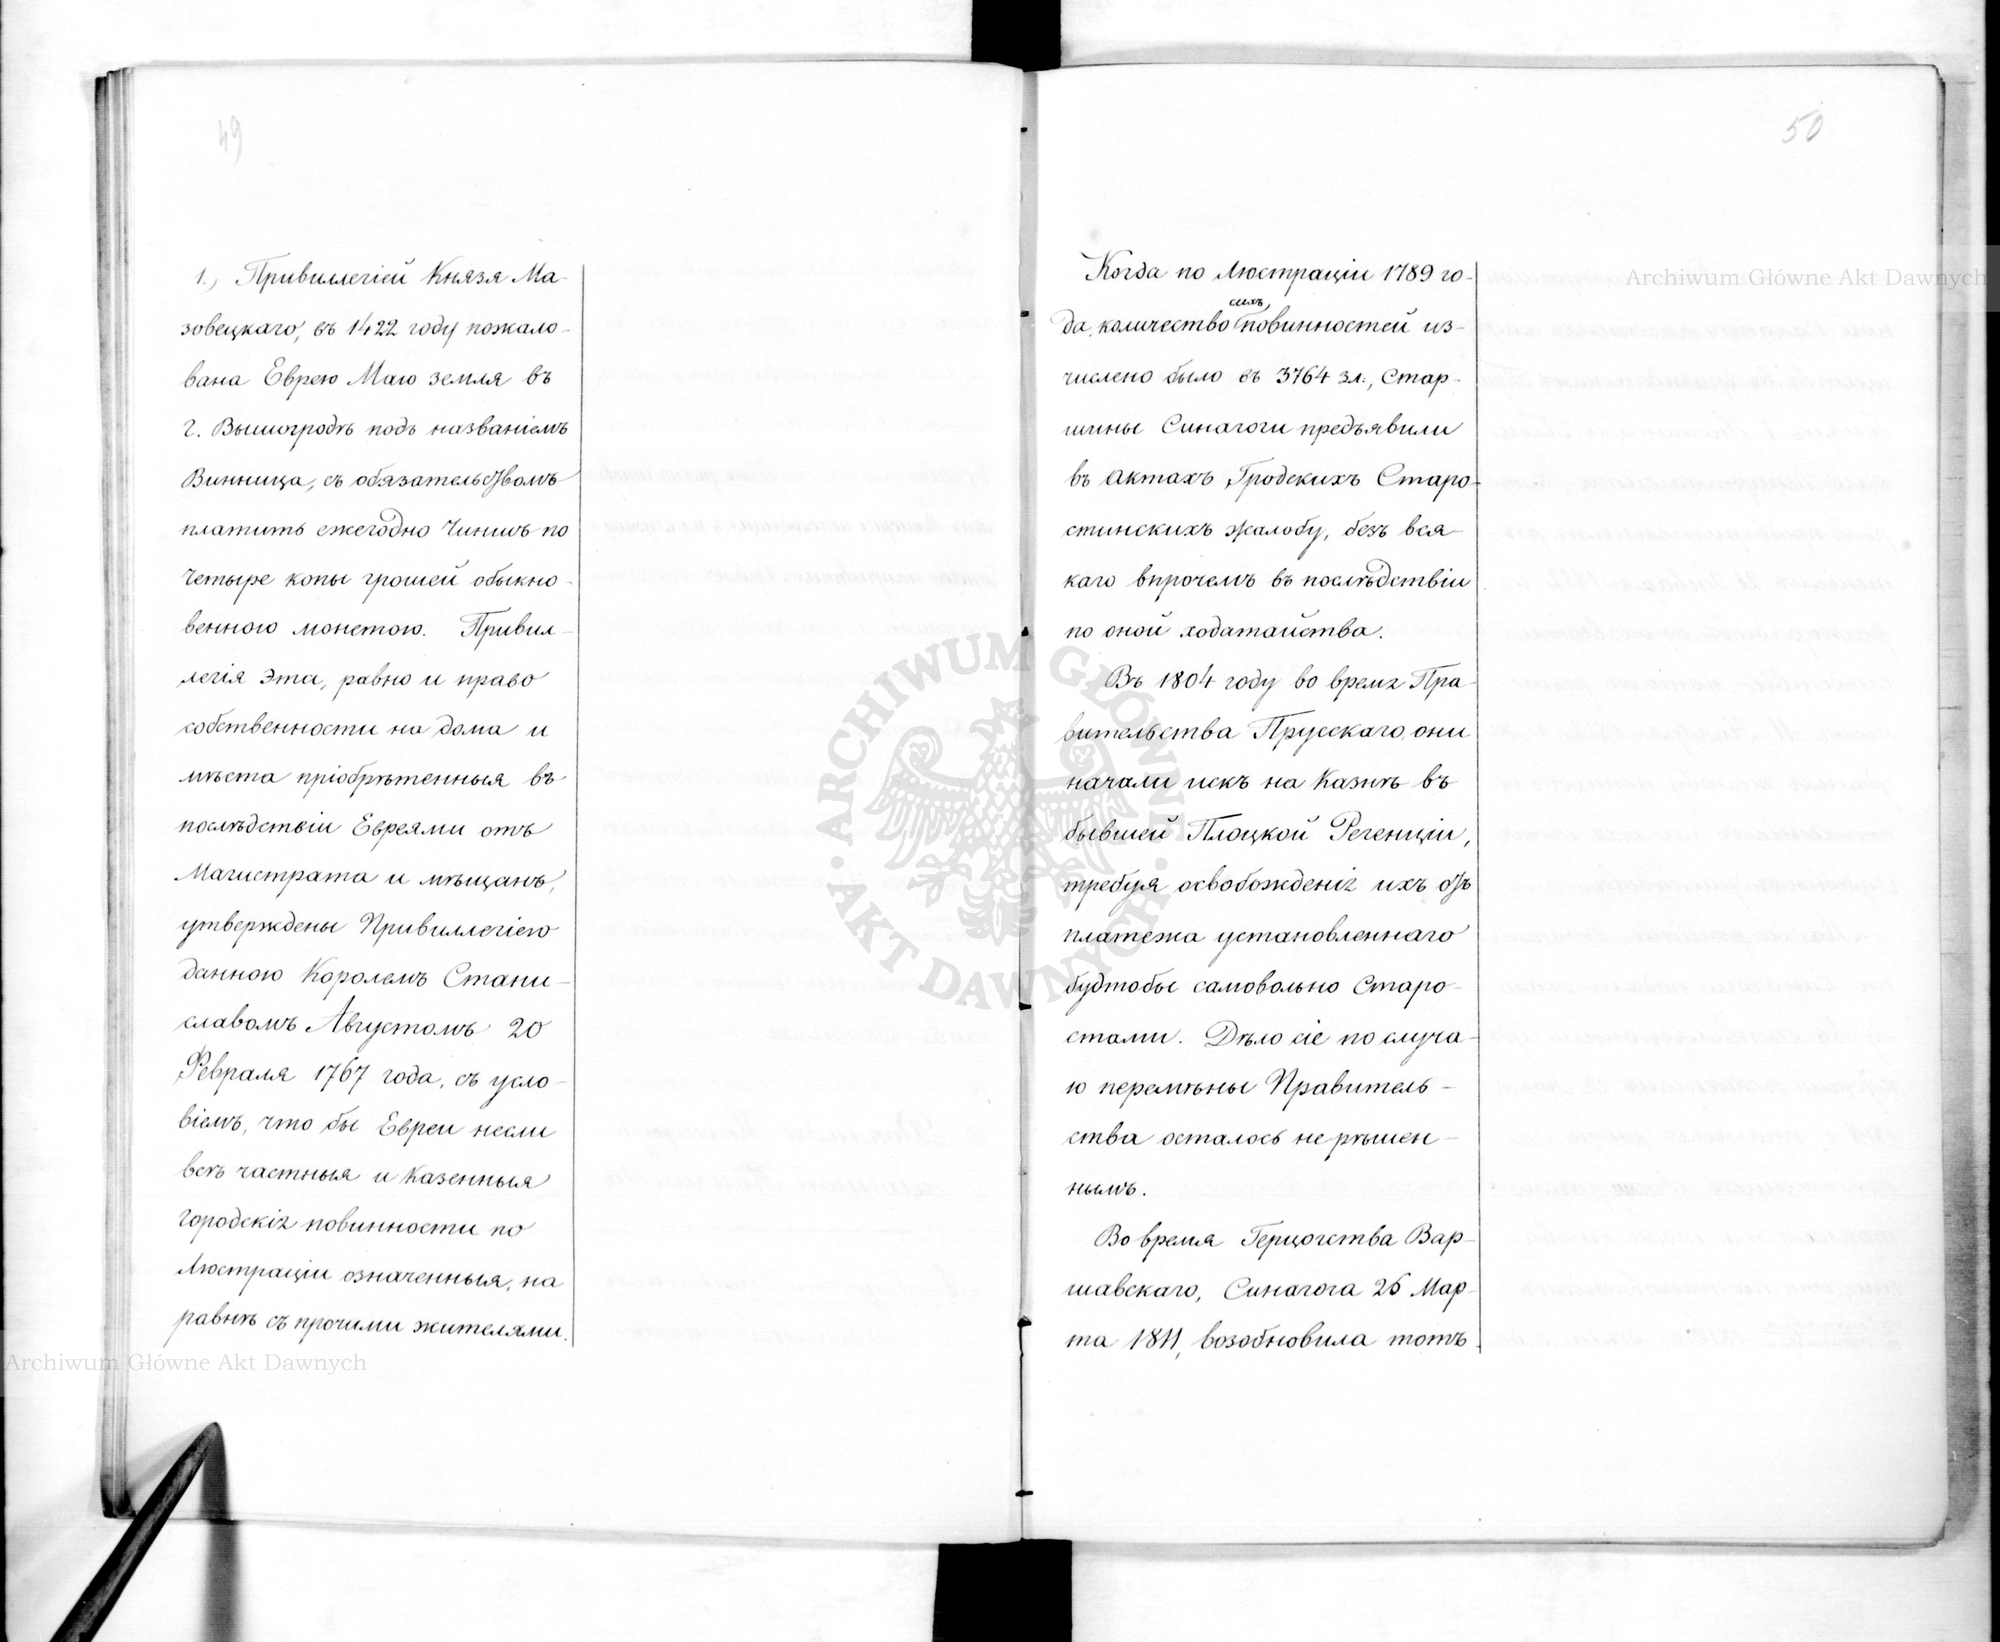 49
1., Привиллегіей Князя Ма-
зовецкаго, въ 1422 году пожало-
вана Еврею Маю земля въ
г. Вышогродѣ подъ названіемъ
Винница, съ обязательствомъ
платить ежегодно Чиншъ по
четыре копы грошей обыкно-
венною монетою. Привил-
легія эта, равно и право
собственности на дома и
мѣста пріобрѣтенныя въ
послѣдствіи Евреями отъ
Магистрата и мѣщанъ,
утверждены Привиллегіею
данною Королемъ Стани-
славомъ Августомъ 20
Февраля 1767 года, съ усло-
віемъ, что бы Евреи несли
всѣ частныя и казенныя
городскія повинности по
Люстраціи означенныя, на
равнѣ съ прочими жителями.
50
Когда по Люстраціи 1789 го-
сихъ
да, количество повинностей из-
числено было въ 3764 зл., Стар-
шины Синагоги предъявили
въ актахъ Гродскихъ Старо-
стинскихъ жалобу, безъ вся-
каго впрочемъ въ послѣдствіи
по оной ходатайства.
Въ 1804 году во время Пра-
вительства Прусскаго, они
начали искъ на Казнѣ въ
бывшей Плоцкой Регенціи,
требуя освобожденія ихъ отъ
платежа установленнаго
будтобы самовольно Старо-
стами. Дѣло сіе по случа-
ю перемѣны Правитель-
ства осталось не рѣшен-
нымъ.
Во время Герцогства Вар-
шавскаго, Синагога 26 Мар-
та 1811, возобновила тотъ
Archiwum Główne Akt Dawnych
Archiwum Główne Akt Dawnych
ARCHIWUM GŁÓWNE AKT DAWNYCH